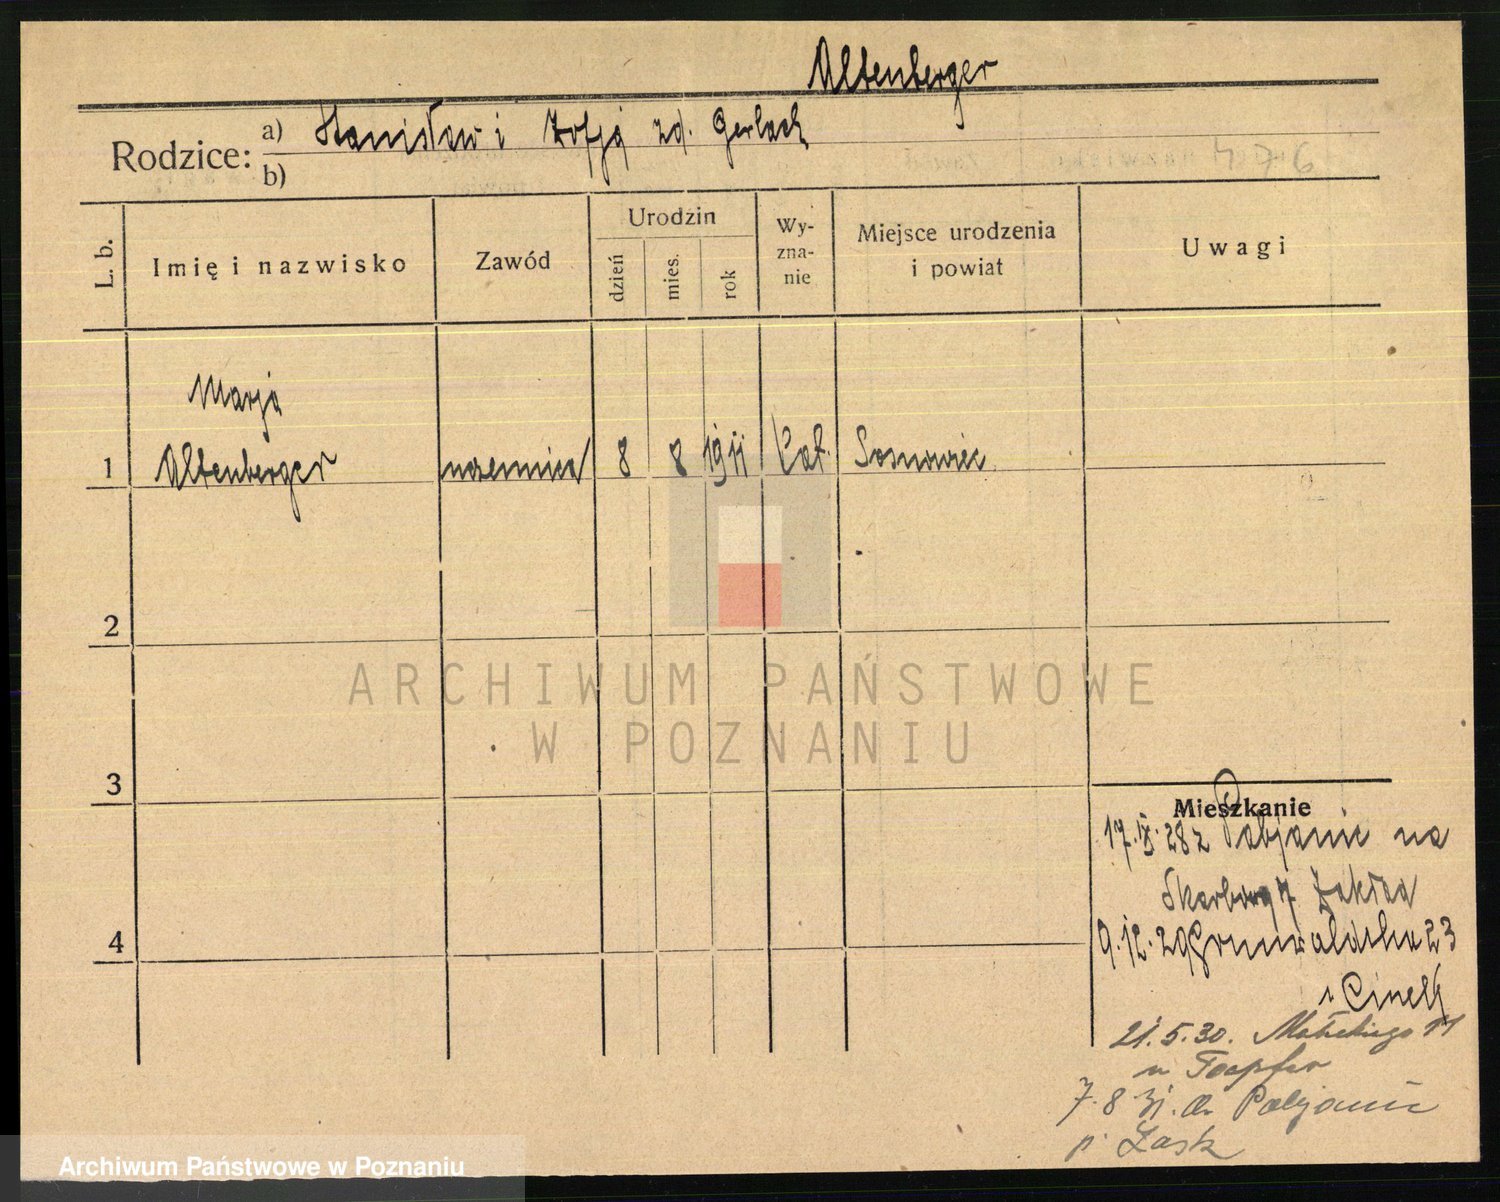 Altenberger
Rodzice: a) Stanisław i Zofja zd. Gerlach
b)
476
L. b.
Imię i nazwisko
Zawód
Urodzin
dzień
mies.
rok
Wy-
zna-
nie
Miejsce urodzenia
i powiat
Uwagi
Marja
1 Altenberger uczennica 8 8 1911 Kat. Sosnowiec
2
3
4
Mieszkanie
17.IX.28 z Pabjanic na
Skarbowa 7 Zakład
9.12.29 Grunwaldzka 23
21.5.30. Małeckiego 11
u Toepfer
7.8 31. do Pabjanic
p. Łask
ARCHIWUM PAŃSTWOWE
W POZNANIU
Archiwum Państwowe w Poznaniu